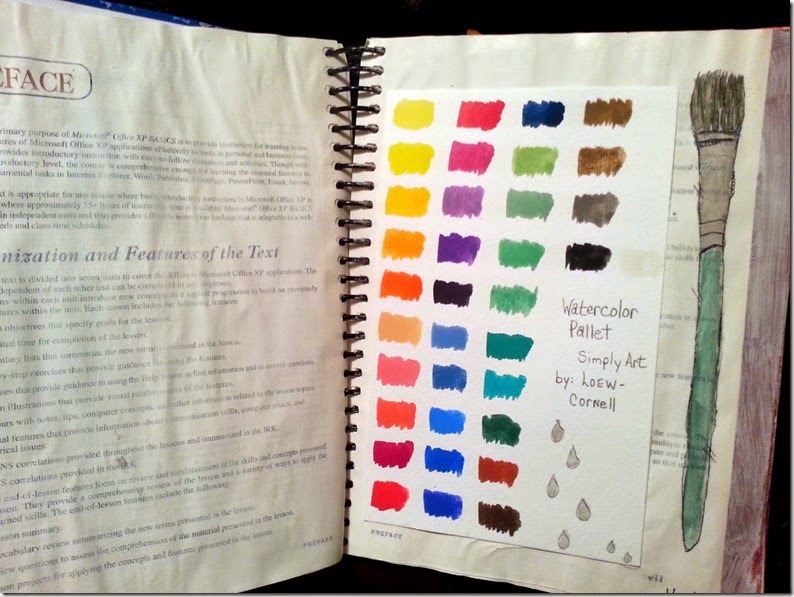 EFACE
primary purpose of Microsoft® Office XP BASICS is to provide instruction for learning to use
tures of Microsoft Office XP applications effectively
provides introductory instruction with easy-to-follow
troductory level, the course is comprehensive enough for learning the essential features
amental tasks in Internet Explorer, Word, Publisher, FrontPage, PowerPoint, Excel, Access,
text is appropriate for any course where basic introductory instruction in Microsoft Office XP is
where approximately 35+ hours of
in independent units and thus provides
eeds and class-time schedules.
nization and Features of the Text
text is divided into seven units to cover the different Microsoft Office XP applications. The
dependent of each other and can be
ns within each unit introduce new concepts in a logical progression to build on previously
eatures within the unit. Each lesson includes the following features:
n objectives that specify goals for the lesson.
ated time for completion of the lesson.
bulary lists that summarize the new terms introduced in the lesson.
y-step exercises that provide guidance for using the features.
ises that provide guidance in using the Help feature to find information and to answer questions.
n illustrations that provide visual reinforcement of the features.
ars with notes, tips, computer concepts, and other information related to the lesson topics.
ial features that provide information about communication skills, computer ethics, and
orical issues.
NS correlations provided throughout the lessons and summarized in the IRK.
S correlations provided in the IRK.
end-of-lesson features focus on review and reinforcement of the skills and concepts presented
esson. They provide a comprehensive review of the lesson and a variety of ways to apply the
arned skills. The end-of-lesson features include the following:
sson summary.
ocabulary review summarizing the new terms presented in the lesson.
view questions to assess the comprehension of the material presented in the lesson.
sson projects for applying the concepts and features presented in the lesson.
PREFACE
Watercolor
Pallet
Simply Art
by: LOEW-
Cornell
PREFACE
vii